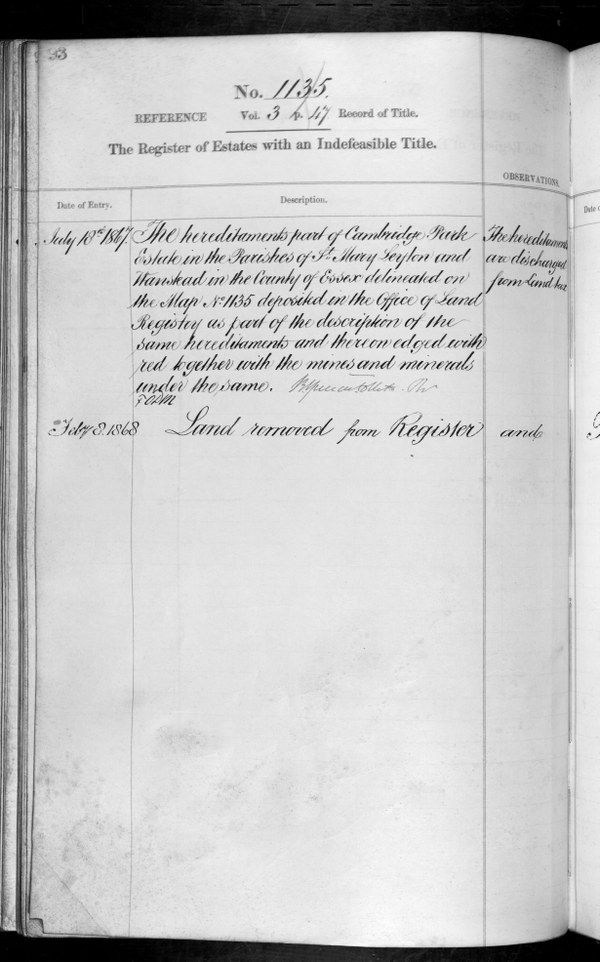 33
No. 1135.
REFERENCE Vol. 3 p. 47 Record of Title.
The Register of Estates with an Indefeasible Title.
OBSERVATIONS.
Date of Entry.
Description.
July 18th 1867
The hereditaments part of Cambridge Park
Estate in the Parishes of St. Mary Leyton and
Wanstead in the County of Essex delineated on
the Map No. 1135 deposited in the Office of Land
Registry as part of the description of the
same hereditaments and thereon edged with
red together with the mines and minerals
under the same.
The hereditaments
are discharged
from Land tax
Feby 8. 1868
Land removed from Register and